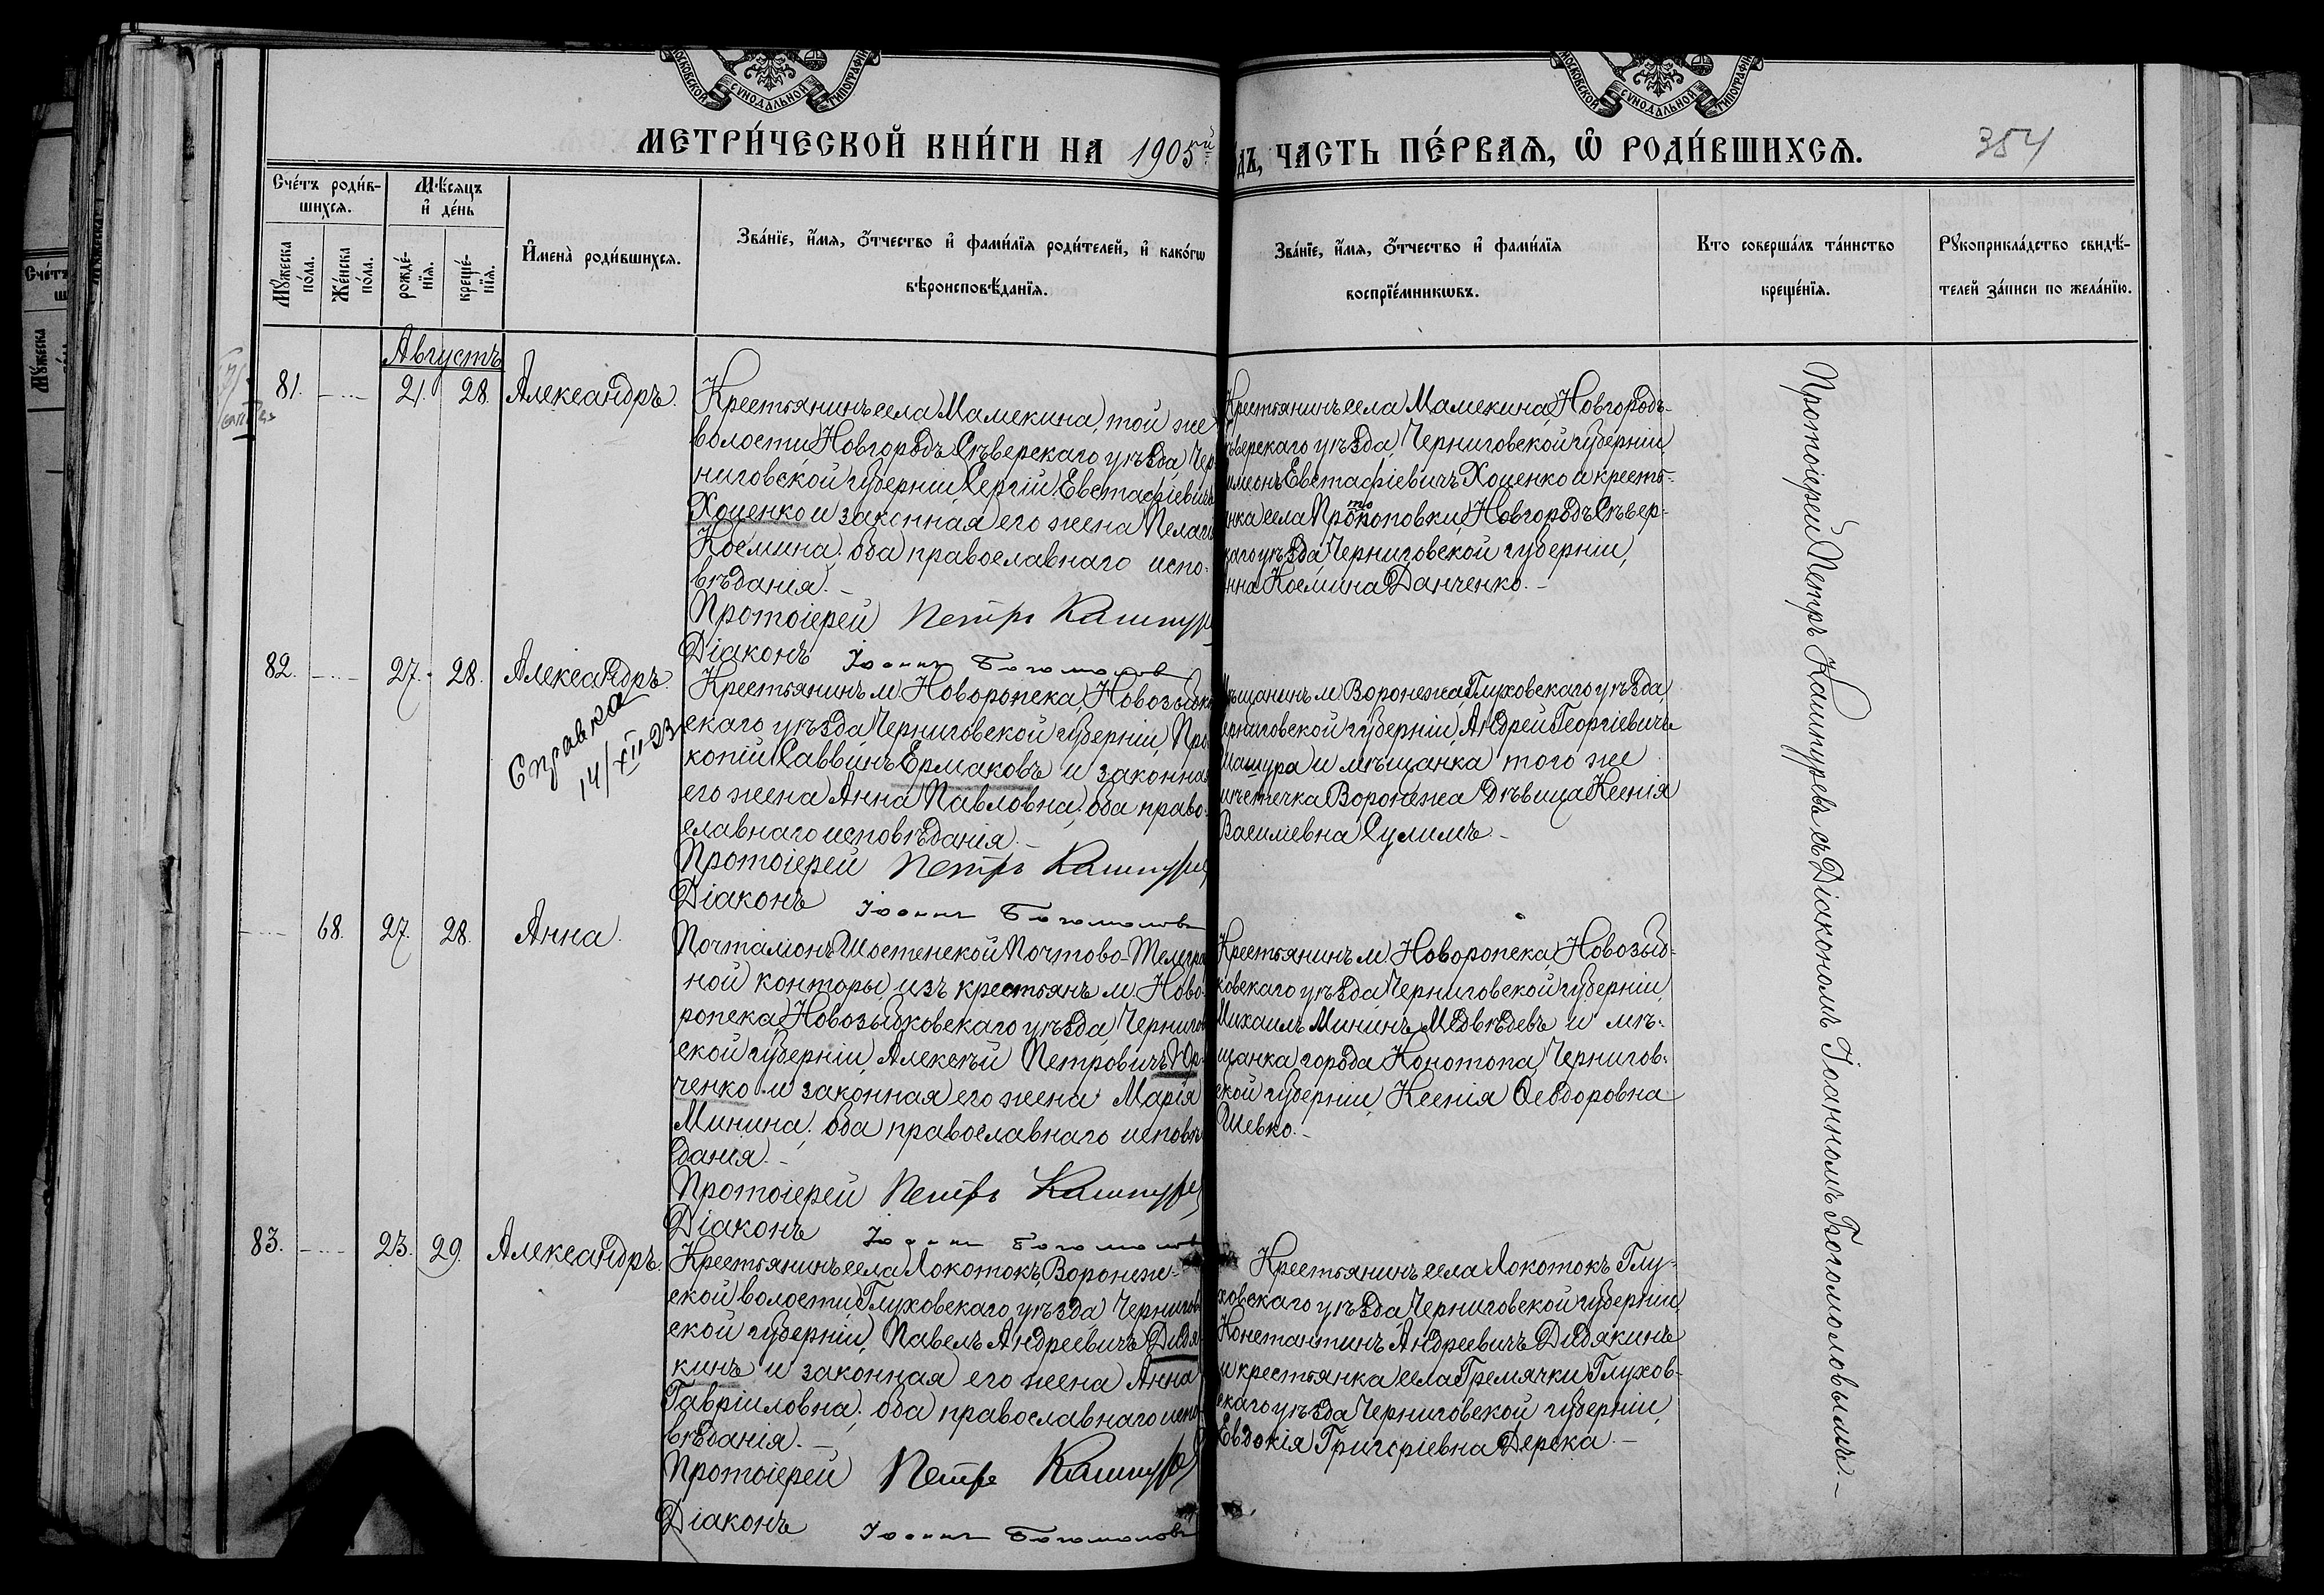 МОСКОВСКОЙ СѴНОДАЛЬНОЙ ТИПОГРАФІИ
МОСКОВСКОЙ СѴНОДАЛЬНОЙ ТИПОГРАФІИ
МЕТРИ́ЧЕСКОЙ КНИ́ГИ НА 1905й
дъ, ЧАСТЬ ПЕ́РВАѦ, Ѡ҆ РОДИ́ВШИХСѦ.
354
Сче́тъ роди́в-
шихсѧ.
Мѣ́сѧцъ
и҆ де́нь
Мꙋ́жеска
по́ла.
Же́нска
по́ла.
рожде́-
нїѧ.
креще́-
нїѧ.
И҆мена̀ роди́вшихсѧ.
Зва́нїе, и҆́мѧ, ѻ҆́тчество и҆ фами́лїѧ роди́телей, и҆ како́гѡ
вѣроисповѣ́данїѧ.
Зва́нїе, и҆́мѧ, ѻ҆́тчество и҆ фами́лїѧ
воспрїе́мникѡвъ.
Кто соверша́лъ та́инство
креще́нїѧ.
Рꙋкоприкла́дство свидѣ́-
телей за́писи по жела́нїю.
Августъ
81. 21. 28. Александръ.
Крестьянинъ села Мамекина, той же
волости, Новгородъ Сѣверскаго уѣзда, Чер
ниговской губерніи Сергій Евстафіевичъ
Хоценко и законная его жена Пелагі
Космина; оба православнаго испо-
вѣданія.–
Протоіерей Петръ Кашпур
Діаконъ Іоаннъ Богомолов
Крестьянинъ села Мамекина, Новгородъ-
ѣверскаго уѣзда, Черниговской губерніи,
имеонъ Евстафіевичъ Хоценко и кресть-
нка села Прокоповки, Новгородъ Сѣвер-
то
каго уѣзда Черниговской губерніи,
нна Космина Данченко.–
82. 27. 28. Александръ.
Справка
14/XII-23
Крестьянинъ м. Новоропска, Новозыбк
скаго уѣзда Черниговской губерніи, Про
копій Саввинъ Ермаковъ и законная
его жена Анна Павловна; оба право-
славнаго исповѣданія.–
Протоіерей Петръ Кашпуре
Діаконъ Іоаннъ Богомоловъ
ѣщанинъ м. Воронежа, Глуховскаго уѣзда,
ерниговской губерніи, Андрей Георгіевичъ
Машура и мѣщанка того же
мѣстечка Воронежа дѣвица Ксенія
Василіевна Сулимъ–
68. 27. 28. Анна.
Почталіонъ Шостенской Почтово-Телегра
ной конторы, изъ крестьянъ м. Ново-
ропска, Новозыбковскаго уѣзда, Чернигов
ской губерніи, Алексѣй Петровичъ Юр-
ченко и законная его жена Марія
Минина; оба православнаго исповѣ
данія.–
Протоіерей Петръ Кашпуре
Діаконъ Іоаннъ Богомолов
Крестьянинъ м. Новоропска, Новозыб-
ковскаго уѣзда Черниговской губерніи,
Михаилъ Мининъ Медвѣдевъ и мѣ-
щанка города Конотопа, Чернигов-
ской губерніи, Ксенія Ѳеодоровна
Шевко.–
83. 23. 29. Александръ.
Крестьянинъ села Локотокъ, Воронеж-
ской волости, Глуховскаго уѣзда, Чернигов
ской губерніи, Павелъ Андреевичъ Дидя
кинъ и законная его жена Анна
Гавріиловна; оба православнаго испо-
вѣданія.–
Протоіерей Петръ Кашпуре
Діаконъ Іоаннъ Богомоловъ
Крестьянинъ села Локотокъ Глу-
ховскаго уѣзда, Черниговской губерніи,
Константинъ Андреевичъ Дидякинъ
и крестьянка села Гремячки Глухов-
скаго уѣзда Черниговской губерніи,
Евдокія Григоріевна Дерека.–
Протоіерей Петръ Кашпуревъ съ Діакономъ Іоанномъ Богомоловымъ.–